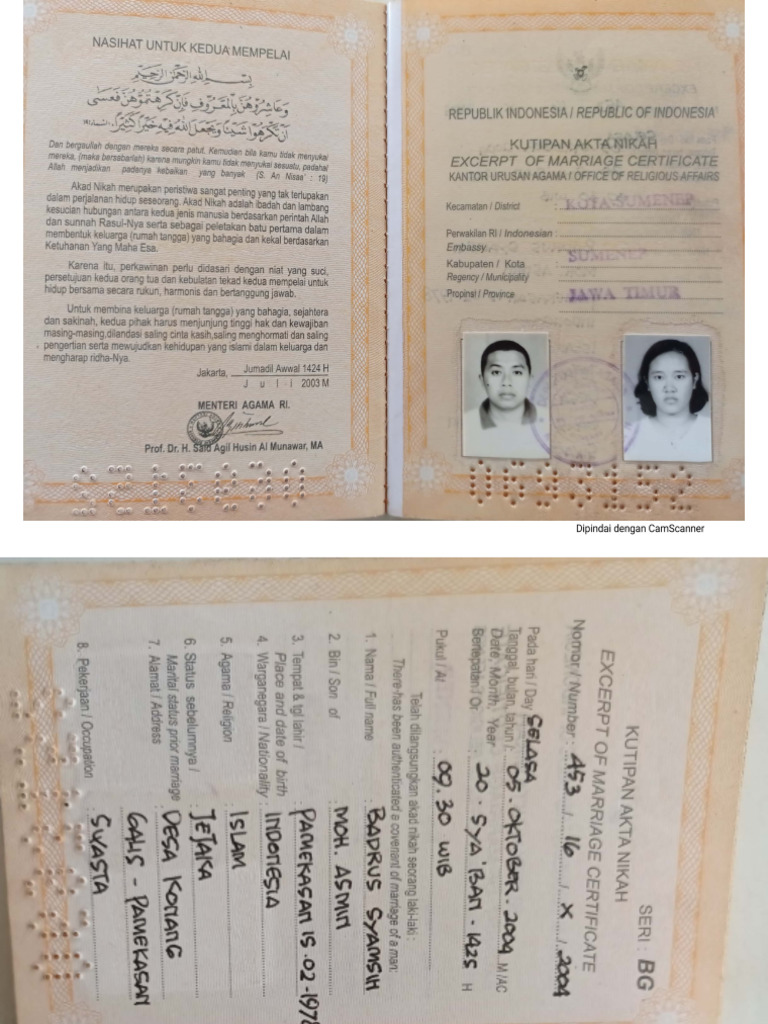 NASIHAT UNTUK KEDUA MEMPELAI
بِسْمِ اللهِ الرَّحْمٰنِ الرَّحِيْمِ
وَعَاشِرُوْهُنَّ بِالْمَعْرُوْفِ فَإِنْ كَرِهْتُمُوْهُنَّ فَعَسٰى
أَنْ تَكْرَهُوْا شَيْئًا وَيَجْعَلَ اللهُ فِيْهِ خَيْرًا كَثِيْرًا.
Dan bergaullah dengan mereka secara patut. Kemudian bila kamu tidak menyukai
mereka, (maka bersabarlah) karena mungkin kamu tidak menyukai sesuatu, padahal
Allah menjadikan padanya kebaikan yang banyak (S. An Nisaa' : 19)
Akad Nikah merupakan peristiwa sangat penting yang tak terlupakan
dalam perjalanan hidup seseorang. Akad Nikah adalah ibadah dan lambang
kesucian hubungan antara kedua jenis manusia berdasarkan perintah Allah
dan sunnah Rasul-Nya serta sebagai peletakan batu pertama dalam
membentuk keluarga (rumah tangga) yang bahagia dan kekal berdasarkan
Ketuhanan Yang Maha Esa.
Karena itu, perkawinan perlu didasari dengan niat yang suci,
persetujuan kedua orang tua dan kebulatan tekad kedua mempelai untuk
hidup bersama secara rukun, harmonis dan bertanggung jawab.
Untuk membina keluarga (rumah tangga) yang bahagia, sejahtera
dan sakinah, kedua pihak harus menjunjung tinggi hak dan kewajiban
masing-masing,dilandasi saling cinta kasih,saling menghormati dan saling
pengertian serta mewujudkan kehidupan yang islami dalam keluarga dan
mengharap ridha-Nya.
Jakarta, Jumadil Awwal 1424 H
J u l i 2003 M
MENTERI AGAMA RI.
Prof. Dr. H. Said Agil Husin Al Munawar, MA
REPUBLIK INDONESIA / REPUBLIC OF INDONESIA
KUTIPAN AKTA NIKAH
EXCERPT OF MARRIAGE CERTIFICATE
KANTOR URUSAN AGAMA / OFFICE OF RELIGIOUS AFFAIRS
Kecamatan / District : KOTA SUMENEP
Perwakilan RI / Indonesian :
Embassy
Kabupaten / Kota : SUMENEP
Regency / Municipality
Propinsi / Province : JAWA TIMUR
Dipindai dengan CamScanner
SERI : BG
KUTIPAN AKTA NIKAH
EXCERPT OF MARRIAGE CERTIFICATE
Nomor / Number : 453 / 16 / X / 2004
Pada hari / Day SELASA
Tanggal, bulan, tahun /: 05 . OKTOBER . 2004 M/AC
Date, Month, Year
Bertepatan / Or : 20 . SYA'BAN . 1425 H
Pukul / At : 09.30 WIB
Telah dilangsungkan akad nikah seorang laki-laki :
There has been authenticated a covenant of marriage of a man:
1. Nama / Full name : BADRUS SYAMSIH
2. Bin / Son of : MOH. ASMIN
3. Tempat & tgl lahir / : PAMEKASAN 15.02-1978
Place and date of birth
4. Warganegara / Nationality : INDONESIA
5. Agama / Religion : ISLAM
6. Status sebelumnya / : JEJAKA
Marital status prior marriage
7. Alamat / Address : DESA KONANG
GALIS - PAMEKASAN
8. Pekerjaan / Occupation : SWASTA